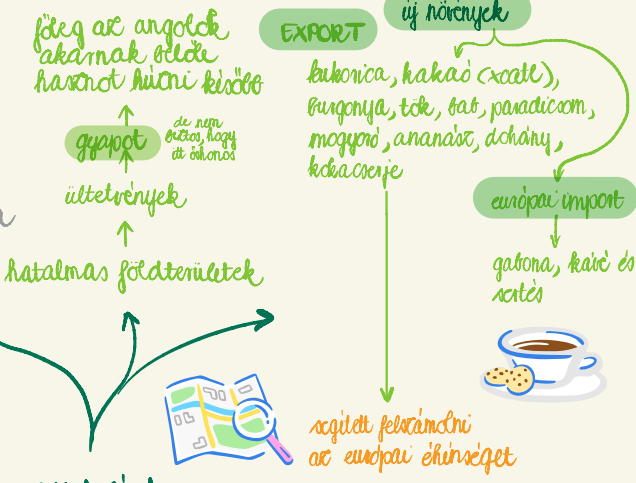 főleg az angolok
akarnak belőle
hasznot húzni később
gyapot
de nem
biztos, hogy
itt őshonos
ültetvények
hatalmas földterületek
EXPORT
új növények
kukorica, kakaó (xcatl),
burgonya, tök, bab, paradicsom,
mogyoró, ananász, dohány,
kokacserje
európai import
gabona, kávé és
sertés
segített felszámolni
az európai éhínséget